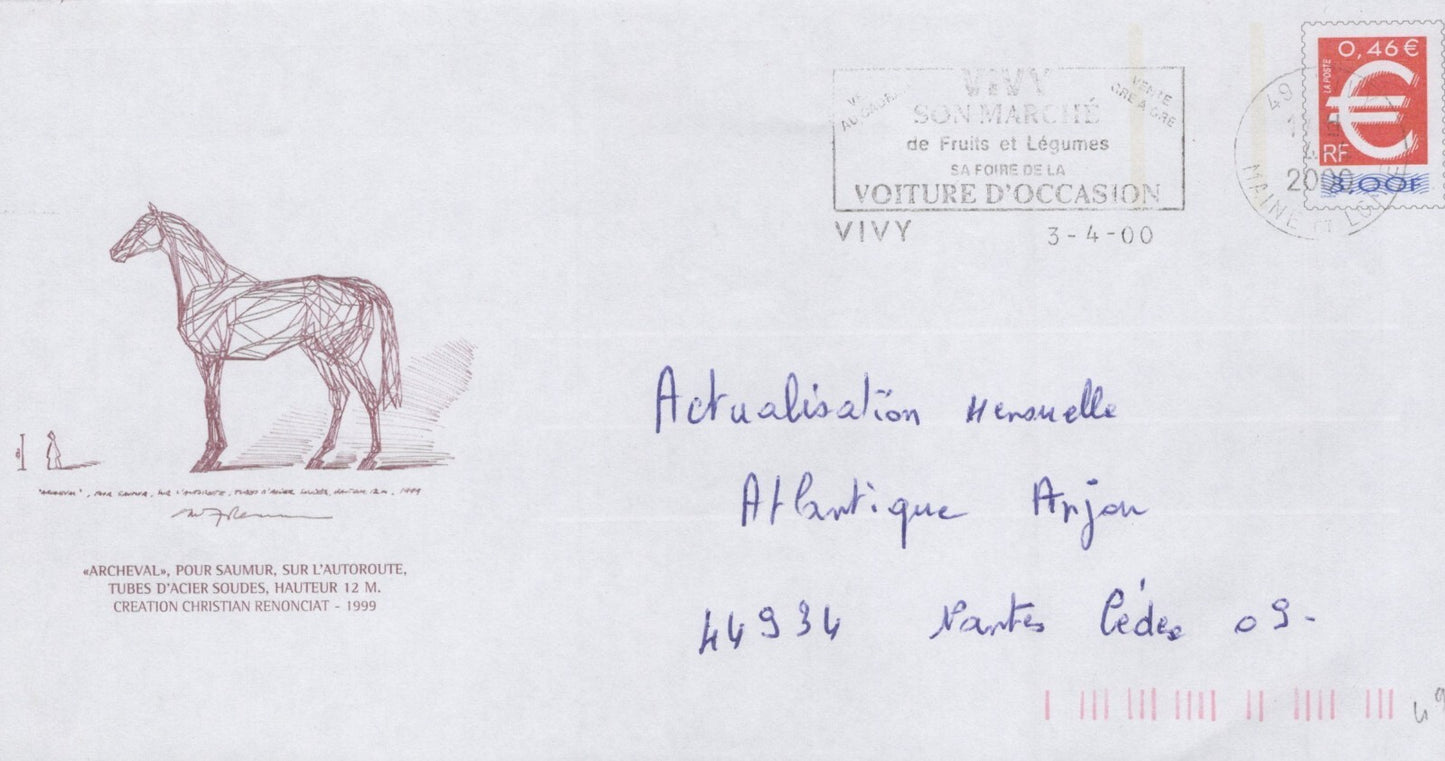 VIVY
AU CADRAN
VENTE
GRE A GRE
SON MARCHÉ
de Fruits et Légumes
SA FOIRE DE LA
VOITURE D'OCCASION
VIVY 3-4-00
49
2000
MAINE ET LOIRE
0,46 €
LA POSTE
€
RF
3,00F
"ARCHEVAL", POUR SAUMUR, SUR L'AUTOROUTE, TUBES D'ACIER SOUDES, HAUTEUR 12 M, 1999
«ARCHEVAL», POUR SAUMUR, SUR L'AUTOROUTE,
TUBES D'ACIER SOUDES, HAUTEUR 12 M.
CREATION CHRISTIAN RENONCIAT - 1999
Actualisation Mensuelle
Atlantique Anjou
44934 Nantes Cédex 09-
49